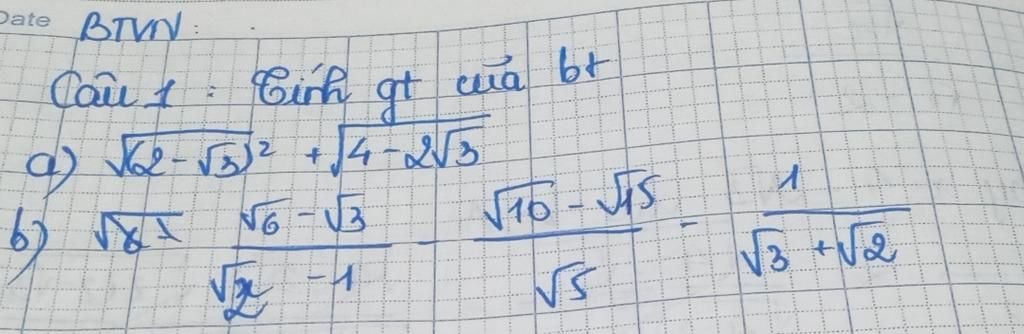 Date BTVN:
Câu 1: Tính gt của bt
a) √(2-√3)² + √4-2√3
b) (√6-√3)/(√2-1) - (√10-√15)/√5 - 1/(√3+√2)